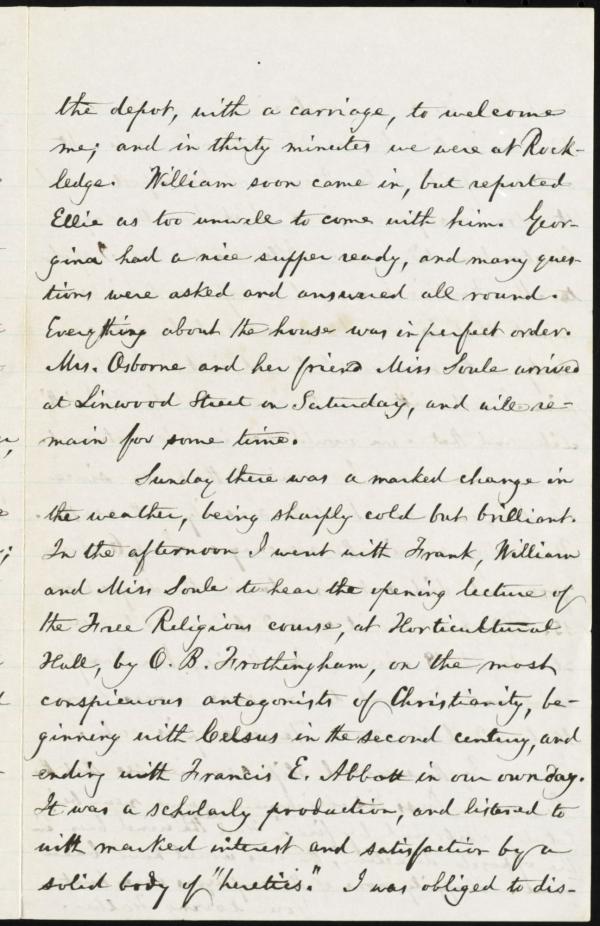 the depot, with a carriage, to welcome
me; and in thirty minutes we were at Rock-
ledge. William soon came in, but reported
Ellie as too unwell to come with him. Geor-
gina had a nice supper ready, and many ques-
tions were asked and answered all round.
Everything about the house was in perfect order.
Mrs. Osborne and her friend Miss Soule arrived
at Linwood Street on Saturday, and will re-
main for some time.
Sunday there was a marked change in
the weather, being sharply cold but brilliant.
In the afternoon I went with Frank, William
and Miss Soule to hear the opening lecture of
the Free Religious course, at Horticultural
Hall, by O. B. Frothingham, on the most
conspicuous antagonists of Christianity, be-
ginning with Celsus in the second century, and
ending with Francis E. Abbott in our own day.
It was a scholarly production, and listened to
with marked interest and satisfaction by a
solid body of "heretics." I was obliged to dis-